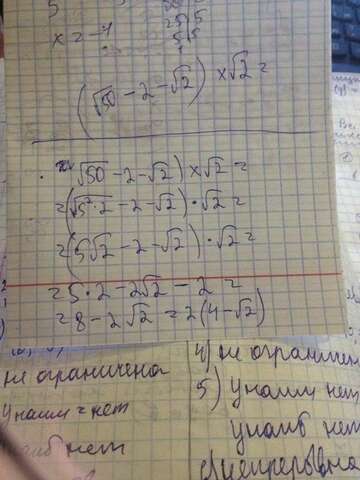 5
x = -1
25|5
5|5
(√50 - 2 - √2) × √2 =
√50 - 2 - √2) × √2 =
= (√5²·2 - 2 - √2) · √2 =
= (5√2 - 2 - √2) · √2 =
= 5 · 2 - 2√2 - 2 =
= 8 - 2√2 = 2(4 - √2)
не ограничена
у наим = нет
наиб нет
4) не ограничен
5) у наим нет
у наиб нет
6) непрерывна